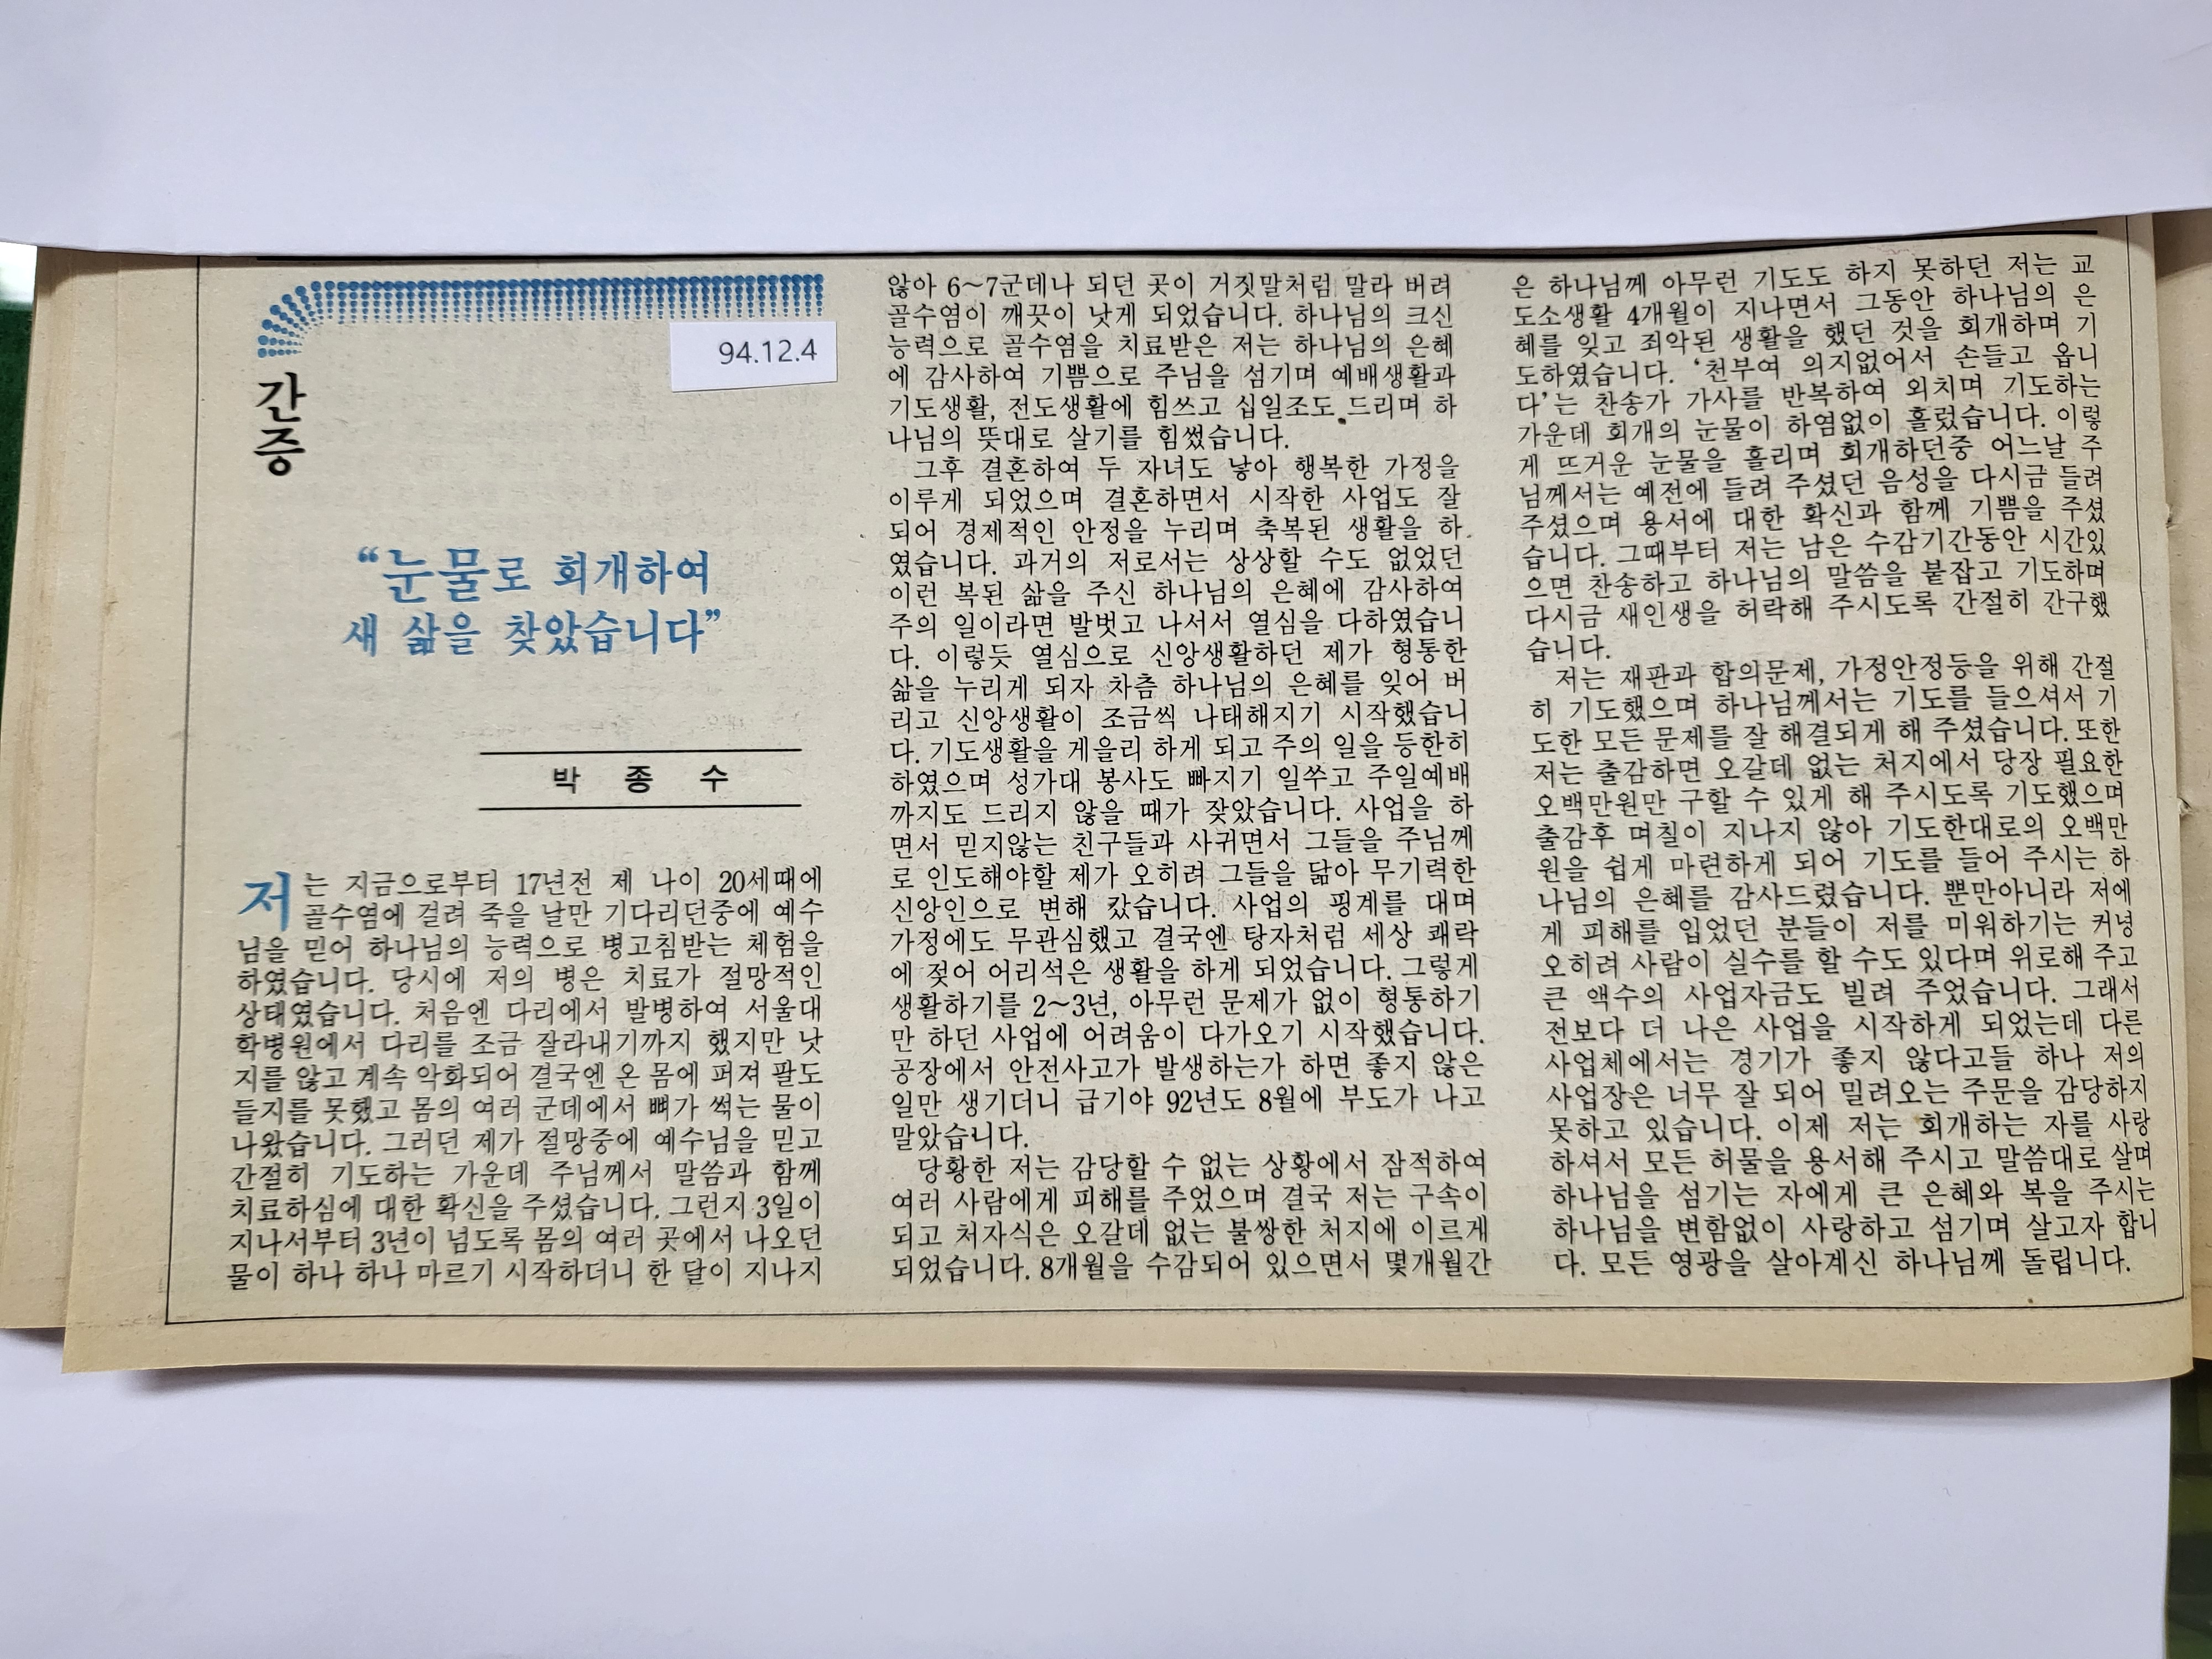 94.12.4
간증
“눈물로 회개하여
새 삶을 찾았습니다”
박 종 수
저는 지금으로부터 17년전 제 나이 20세때에
골수염에 걸려 죽을 날만 기다리던중에 예수
님을 믿어 하나님의 능력으로 병고침받는 체험을
하였습니다. 당시에 저의 병은 치료가 절망적인
상태였습니다. 처음엔 다리에서 발병하여 서울대
학병원에서 다리를 조금 잘라내기까지 했지만 낫
지를 않고 계속 악화되어 결국엔 온 몸에 퍼져 팔도
들지를 못했고 몸의 여러 군데에서 뼈가 썩는 물이
나왔습니다. 그러던 제가 절망중에 예수님을 믿고
간절히 기도하는 가운데 주님께서 말씀과 함께
치료하심에 대한 확신을 주셨습니다. 그런지 3일이
지나서부터 3년이 넘도록 몸의 여러 곳에서 나오던
물이 하나 하나 마르기 시작하더니 한 달이 지나지
않아 6~7군데나 되던 곳이 거짓말처럼 말라 버려
골수염이 깨끗이 낫게 되었습니다. 하나님의 크신
능력으로 골수염을 치료받은 저는 하나님의 은혜
에 감사하여 기쁨으로 주님을 섬기며 예배생활과
기도생활, 전도생활에 힘쓰고 십일조도 드리며 하
나님의 뜻대로 살기를 힘썼습니다.
그후 결혼하여 두 자녀도 낳아 행복한 가정을
이루게 되었으며 결혼하면서 시작한 사업도 잘
되어 경제적인 안정을 누리며 축복된 생활을 하
였습니다. 과거의 저로서는 상상할 수도 없었던
이런 복된 삶을 주신 하나님의 은혜에 감사하여
주의 일이라면 발벗고 나서서 열심을 다하였습니
다. 이렇듯 열심으로 신앙생활하던 제가 형통한
삶을 누리게 되자 차츰 하나님의 은혜를 잊어 버
리고 신앙생활이 조금씩 나태해지기 시작했습니
다. 기도생활을 게을리 하게 되고 주의 일을 등한히
하였으며 성가대 봉사도 빠지기 일쑤고 주일예배
까지도 드리지 않을 때가 잦았습니다. 사업을 하
면서 믿지않는 친구들과 사귀면서 그들을 주님께
로 인도해야할 제가 오히려 그들을 닮아 무기력한
신앙인으로 변해 갔습니다. 사업의 핑계를 대며
가정에도 무관심했고 결국엔 탕자처럼 세상 쾌락
에 젖어 어리석은 생활을 하게 되었습니다. 그렇게
생활하기를 2~3년, 아무런 문제가 없이 형통하기
만 하던 사업에 어려움이 다가오기 시작했습니다.
공장에서 안전사고가 발생하는가 하면 좋지 않은
일만 생기더니 급기야 92년도 8월에 부도가 나고
말았습니다.
당황한 저는 감당할 수 없는 상황에서 잠적하여
여러 사람에게 피해를 주었으며 결국 저는 구속이
되고 처자식은 오갈데 없는 불쌍한 처지에 이르게
되었습니다. 8개월을 수감되어 있으면서 몇개월간
은 하나님께 아무런 기도도 하지 못하던 저는 교
도소생활 4개월이 지나면서 그동안 하나님의 은
혜를 잊고 죄악된 생활을 했던 것을 회개하며 기
도하였습니다. ‘천부여 의지없어서 손들고 옵니
다’는 찬송가 가사를 반복하여 외치며 기도하는
가운데 회개의 눈물이 하염없이 흘렀습니다. 이렇
게 뜨거운 눈물을 흘리며 회개하던중 어느날 주
님께서는 예전에 들려 주셨던 음성을 다시금 들려
주셨으며 용서에 대한 확신과 함께 기쁨을 주셨
습니다. 그때부터 저는 남은 수감기간동안 시간있
으면 찬송하고 하나님의 말씀을 붙잡고 기도하며
다시금 새인생을 허락해 주시도록 간절히 간구했
습니다.
저는 재판과 합의문제, 가정안정등을 위해 간절
히 기도했으며 하나님께서는 기도를 들으셔서 기
도한 모든 문제를 잘 해결되게 해 주셨습니다. 또한
저는 출감하면 오갈데 없는 처지에서 당장 필요한
오백만원만 구할 수 있게 해 주시도록 기도했으며
출감후 며칠이 지나지 않아 기도한대로의 오백만
원을 쉽게 마련하게 되어 기도를 들어 주시는 하
나님의 은혜를 감사드렸습니다. 뿐만아니라 저에
게 피해를 입었던 분들이 저를 미워하기는 커녕
오히려 사람이 실수를 할 수도 있다며 위로해 주고
큰 액수의 사업자금도 빌려 주었습니다. 그래서
전보다 더 나은 사업을 시작하게 되었는데 다른
사업체에서는 경기가 좋지 않다고들 하나 저의
사업장은 너무 잘 되어 밀려오는 주문을 감당하지
못하고 있습니다. 이제 저는 회개하는 자를 사랑
하셔서 모든 허물을 용서해 주시고 말씀대로 살며
하나님을 섬기는 자에게 큰 은혜와 복을 주시는
하나님을 변함없이 사랑하고 섬기며 살고자 합니
다. 모든 영광을 살아계신 하나님께 돌립니다.